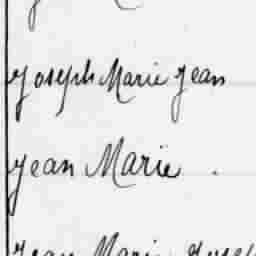 Joseph Marie Jean
Jean Marie.
Jean Marie Joseph